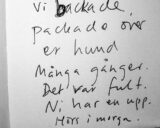 Vi backade,
packade över
er hund
Många gånger.
Det var fult.
Ni har en upp.
Hörs i morgon.